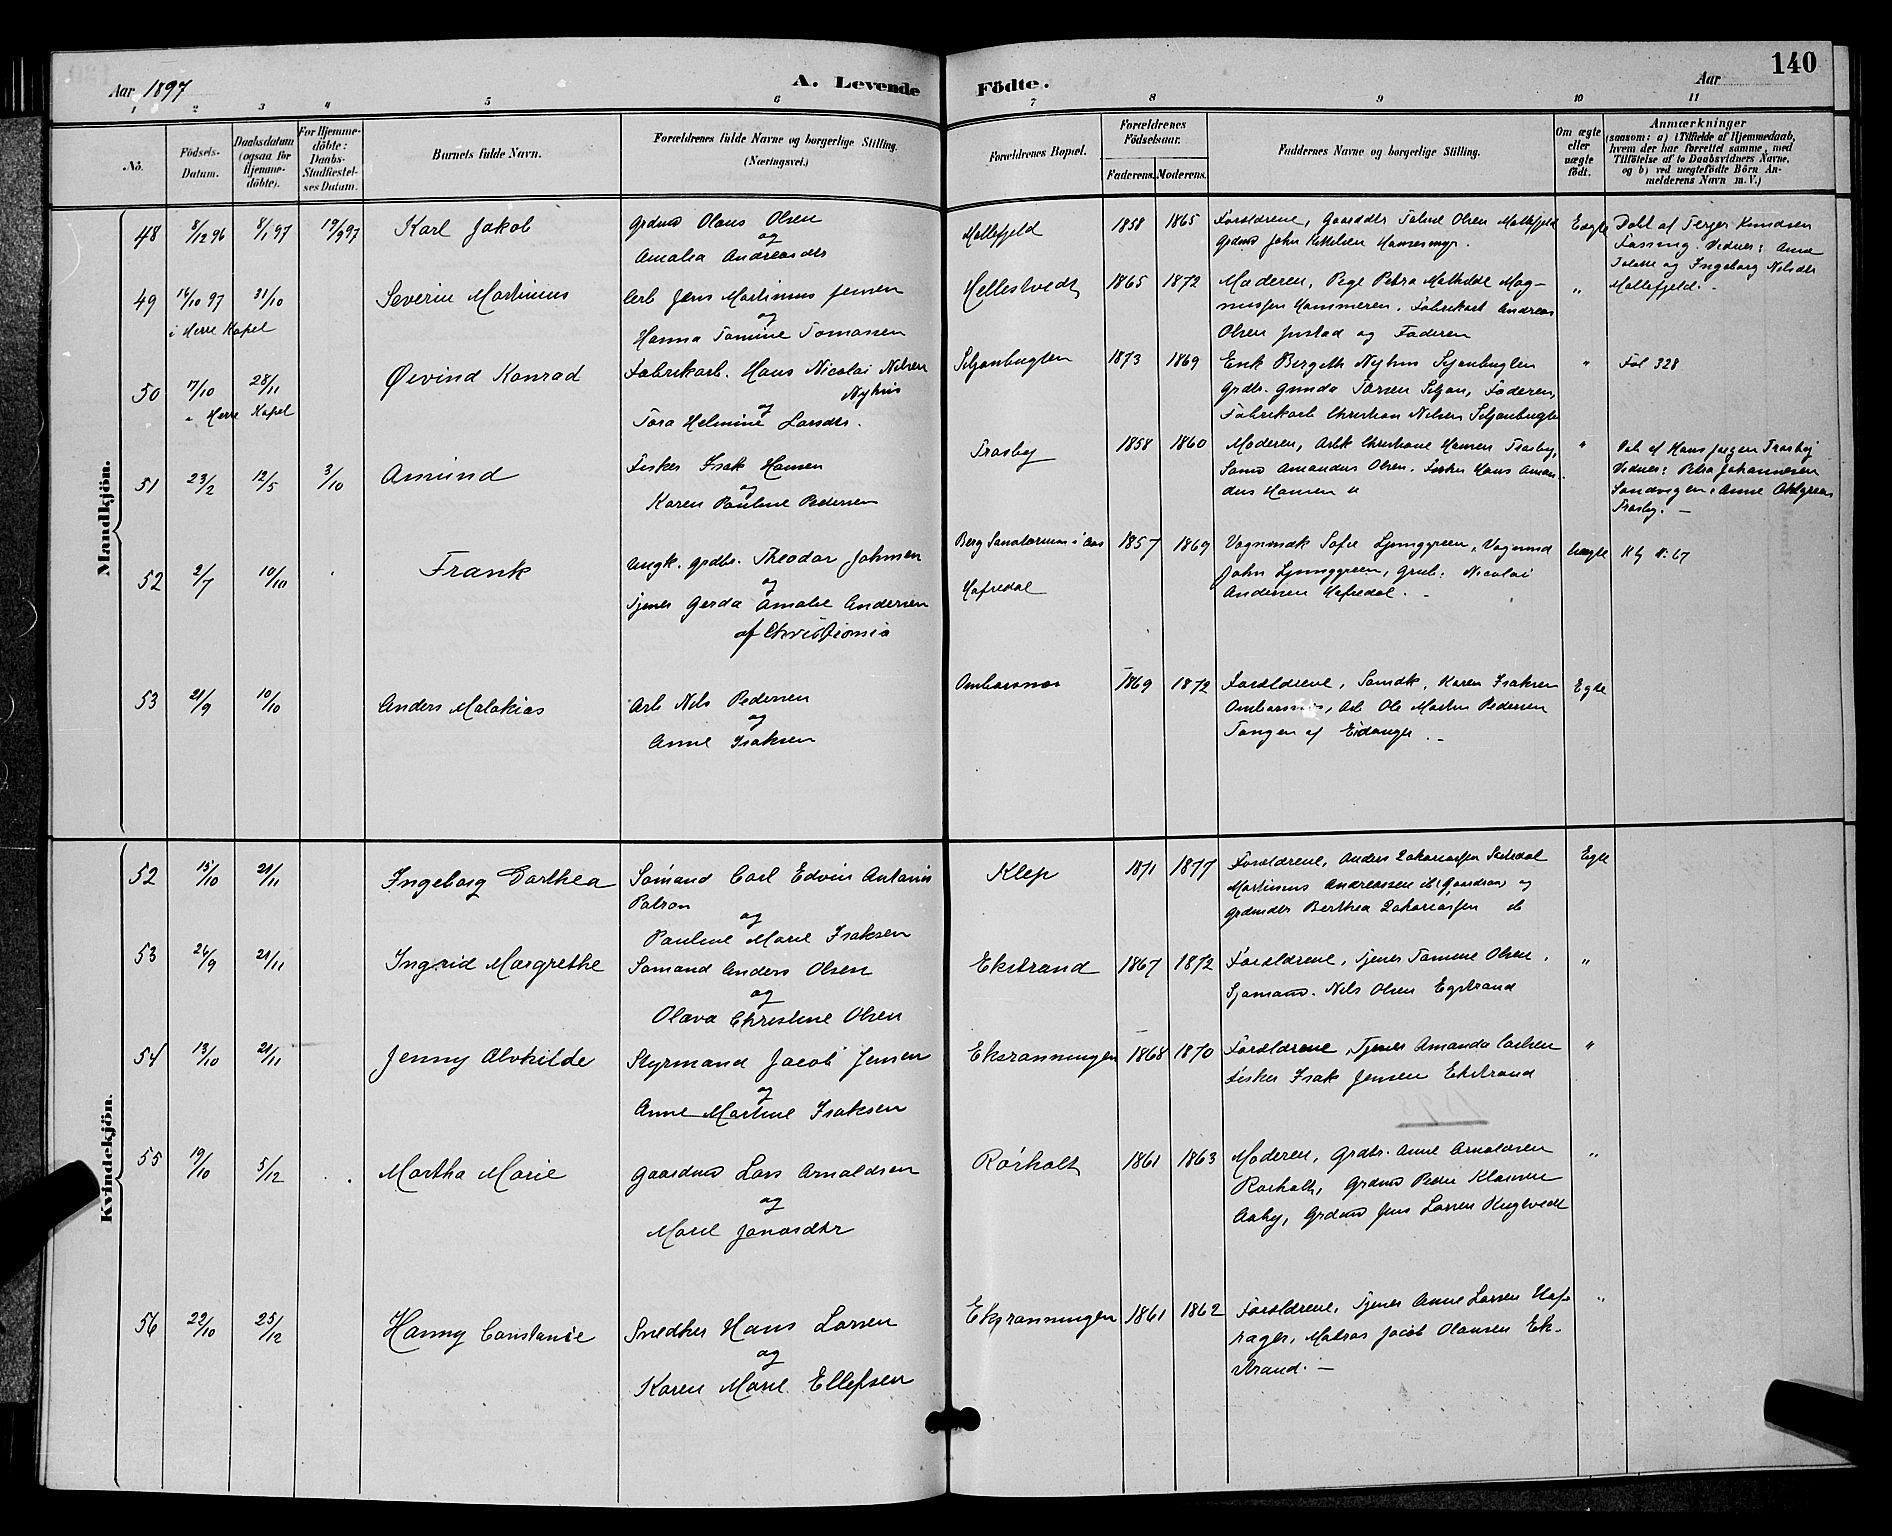 140
Aar 1897
A. Levende
Födte.
Aar
1 2 3 4 5 6 7 8 9 10 11
No.
Födsels-
Datum.
Daabsdatum
(ogsaa for
Hjemme-
döbte).
For Hjemme-
döbte:
Daabs-
Stadfæstel-
ses Datum.
Barnets fulde Navn.
Forældrenes fulde Navne og borgerlige Stilling.
(Næringsvei.)
Forældrenes Bopæl.
Forældrenes
Födselsaar.
Faderens. Moderens.
Faddernes Navne og borgerlige Stilling.
Om ægte
eller
uægte
födt.
Anmærkninger
(saasom: a) i Tilfælde af Hjemmedaab,
hvem der har forrettet samme, med
Tilföielse af to Daabsvidners Navne,
og b) ved uægtefödte Börn An-
melderens Navn m. V.)
Mandkjön.
48 8/12 96 8/1 97 19/9 97 Karl Jakob
Grdmd Olaus Olsen
og
Amalia Andreasdtr
Mollefjeld 1858 1865
Forældrene, Gaarddtr Taline Olsen Mollefjeld
Grdmd John Kittelsen Hansesmyr.
Eægte
Døbt af Terjer Knudsen
Fossing. Vidner: Anne
Tolette og Ingeborg Nilsdtr
Mollefjeld.
49 14/10 97 31/10
i Herre Kapel
Severin Martinius
Arb Jens Martinius Jensen
og
Hanna Tomine Tomassen
Hellestvedt 1865 1872
Moderen, Pige Petra Mathilde Mag-
nussen Hammeren, Fabrikarb Andreas
Olsen Justad og Faderen
"
50 7/10 28/11
" Herre Kapel
Øivind Konrad
Fabrikarb. Hans Nicolai Nilsen
Nyhus
og
Tora Helmine Larsdtr.
Seljanbugten 1873 1869
Enk Bergith Nyhus Seljanbugten
Grdtr. Gunda Torsen Seljan, Faderen,
Fabrikarb Christian Nilsen Seljanbugten
" Fol 328
51 23/2 12/5 3/10 Amund
Fisker Isak Hansen
og
Karen Pauline Pedersen
Trosby 1858 1860
Moderen, Arbk Christiane Hansen Trosby,
Sømd Amandus Olsen, Fisker Hans Aman-
dus Hansen
"
Døb af Hans Jørgen Trosby
Vidner: Petra Johannesen
Sandvigen, Anne Ahlgreen
Trosby. —
52 2/7 10/10 Frank
Ungk. grdbr. Theodor Johnsen
og
Tjener Gerda Amalie Andersen
af Christiania
Berg Sanatorium i Aas
Hafredal
1857 1869
Vognmdk Sofie Ljunggreen, Vognmd
John Ljunggreen, Grub. Nicolai
Andersen Hafredal. –
Uægte
53 21/9 10/10 Anders Malakias
Arb Nils Pedersen
og
Anne Isaksen
Ombarsnes 1869 1872
Forældrene, Sømdk. Karen Isaksen
Ombarsnes, Arb Ole Martin Pedersen
Tangen af Eidanger. –
Egte
Kvindekjön.
52 15/10 21/11 Ingeborg Dorthea
Sömand Carl Edvin Antonius
Patron
og
Pauline Marie Isaksen
Klep 1871 1877
Forældrene, Anders Zakariassen
Martinius Andreassen ib (Gaardm) og
Grdmdtr Berthea Zakariassen ib
Egte
53 26/9 21/11 Ingrid Margrethe
Sømand Anders Olsen
og
Olava Christine Olsen
Ekstrand 1867 1872
Forældrene, Tjener Tomine Olsen,
Sjømand. Nils Olsen Egstrand
"
54 13/10 21/11 Jenny Alvhilde
Styrmand Jacob Jensen
og
Anne Martine Isaksen
Eksranningen 1868 1870
Forældrene, Tjener Amanda Carlsen
Fisker Isak Jensen Ekstrand
"
55 19/10 5/12 Martha Marie
Gaardmd Lars Arnoldsen
og
Marie Jonasdtr
Rörholt 1861 1863
Moderen, Grdtr. Anne Arnoldsen
Rorholt, Grdmd Peder Klausen
Aaby, Grdmd Jens Larsen
"
56 22/10 25/12 Hanny Constanse
Snedker Hans Larsen
og
Karen Marie Ellefsen
Eksranningen 1861 1862
Forældrene, Tjener Anne Larsen Haf-
rager, Matros Jacob Olausen Ek-
strand. —
"